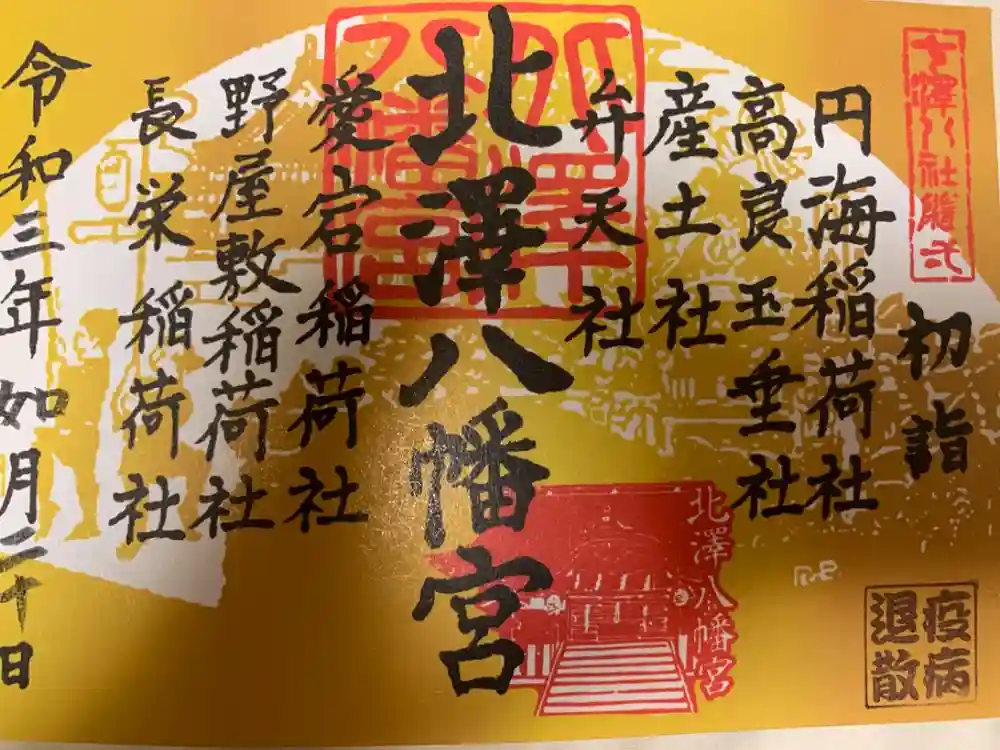 七澤八社随弍
初詣
円海稲荷社
高良玉垂社
産土社
弁天社
北澤八幡宮
北澤八幡宮
愛宕稲荷社
野屋敷稲荷社
長栄稲荷社
令和三年如月二十日
北澤八幡宮
疫病
退散